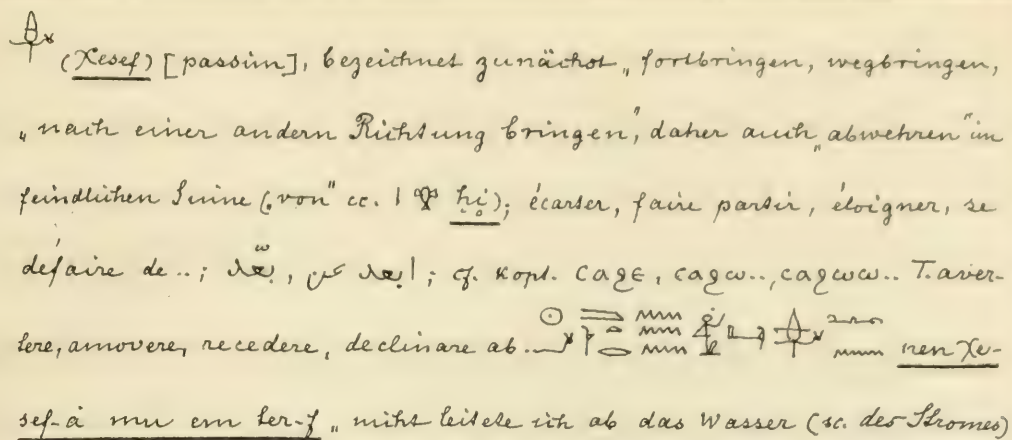 (χesef) [passim], bezeichnet zunächst „fortbringen, wegbringen,
„nach einer andern Richtung bringen", daher auch „abwehren" im
feindlichen Sinne („von" cc. ḥi); écarter, faire partir, éloigner, se
défaire de ..; ابعد عن , بعّد; cf. kopt. ⲥⲁϩⲉ, ⲥⲁϩⲱ.., ⲥⲁϩⲱⲱ.. T. aver-
tere, amovere, recedere, declinare ab. nen χe-
sef-à mu em ter-f „nicht leitete ich ab das Wasser (sc. des Stromes)